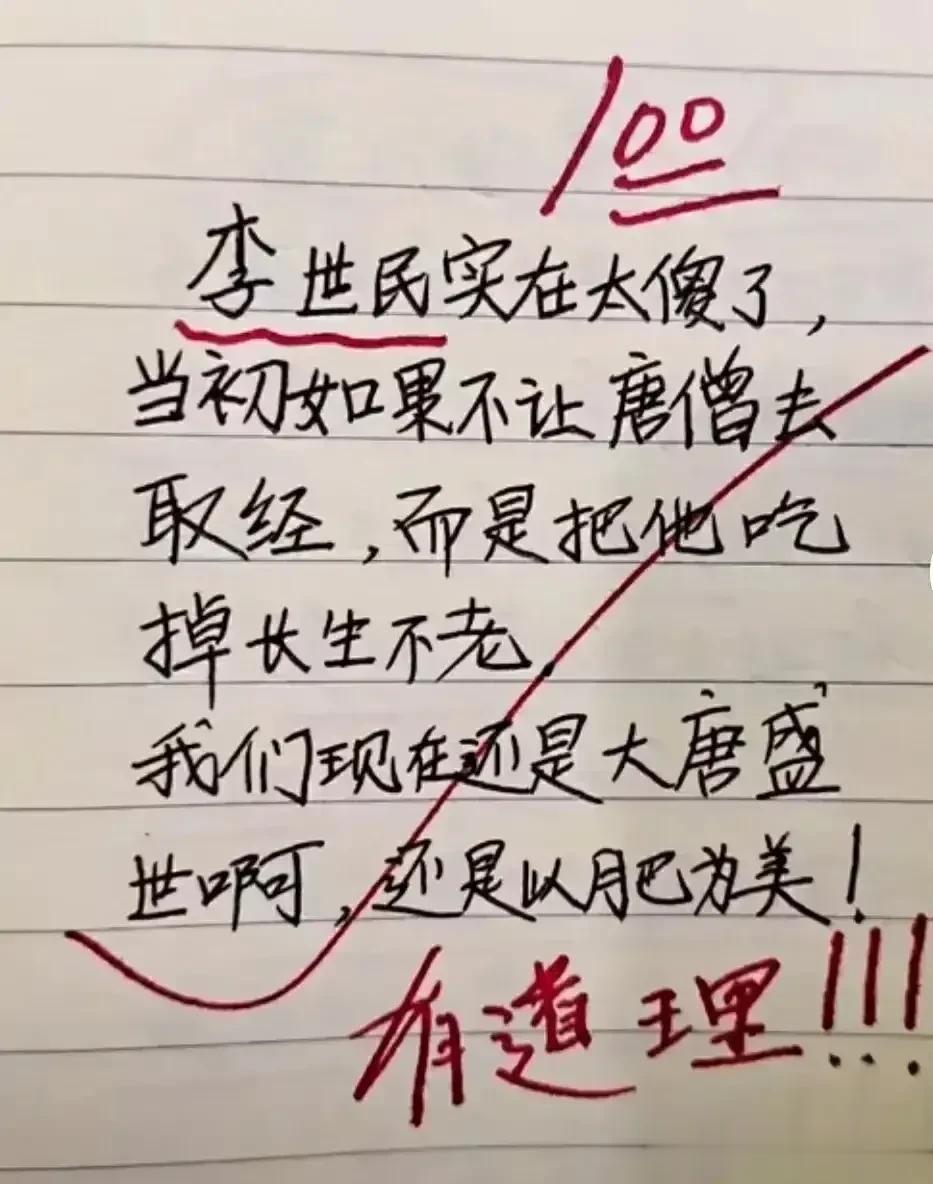 100
李世民实在太傻了，
当初如果不让唐僧去
取经，而是把他吃
掉长生不老.
我们现在还是大唐盛
世啊，还是以肥为美！
有道理!!!